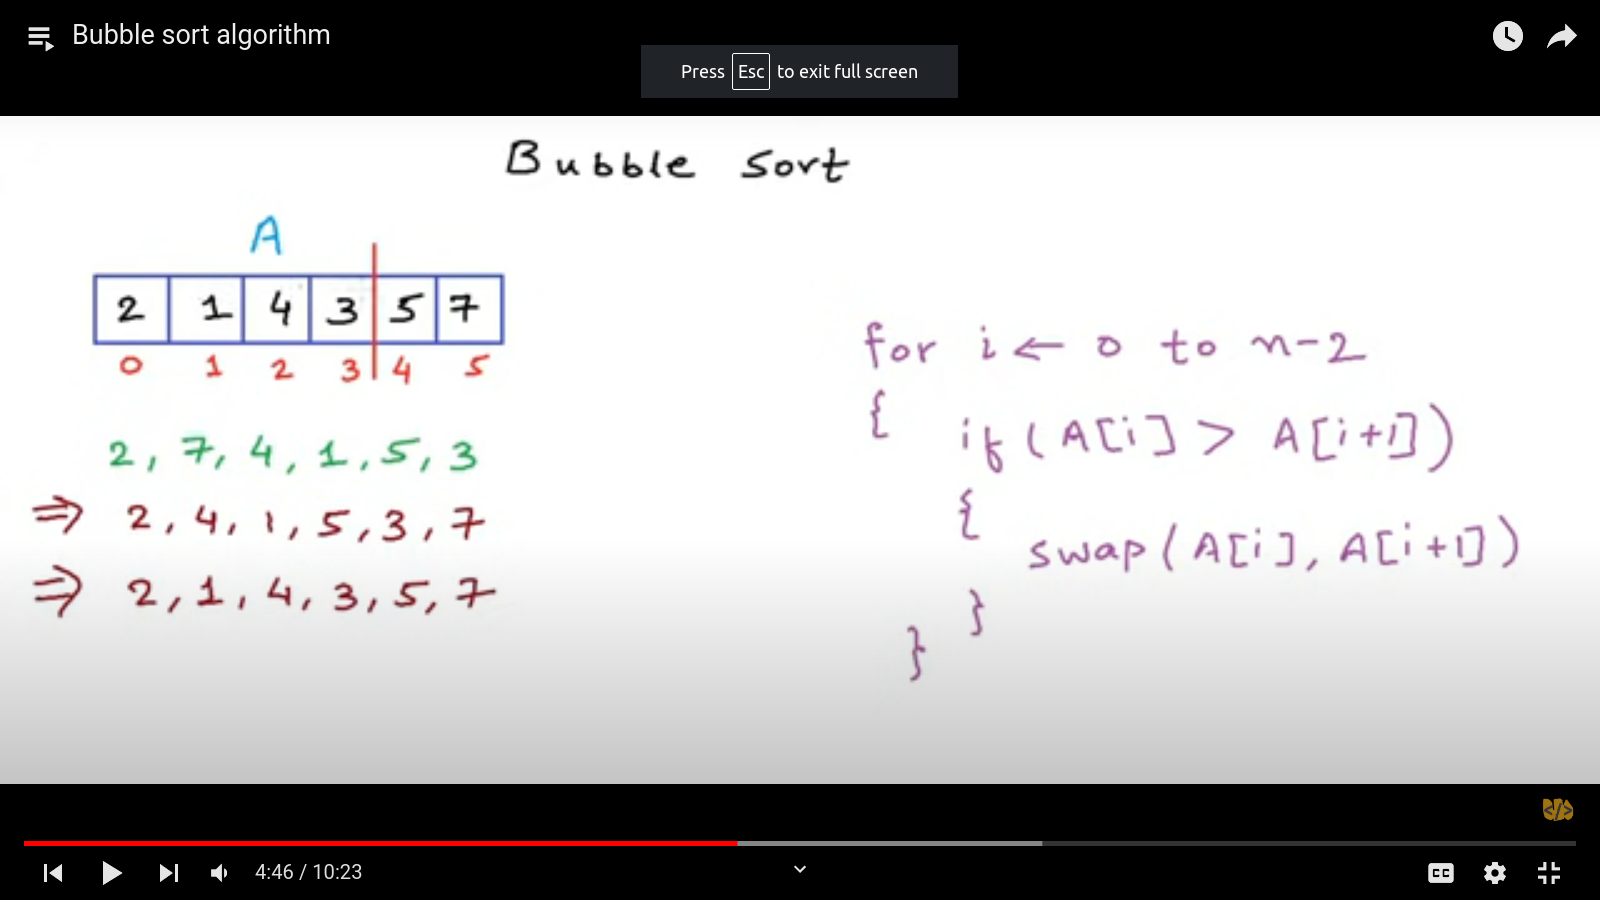 Bubble sort algorithm
Press Esc to exit full screen
Bubble Sort
A
2 1 4 3 5 7
0 1 2 3 4 5
2, 7, 4, 1, 5, 3
⇒ 2, 4, 1, 5, 3, 7
⇒ 2, 1, 4, 3, 5, 7
for i ← 0 to n-2
{ if (A[i] > A[i+1])
{
swap (A[i], A[i+1])
}
}
4:46 / 10:23
CC